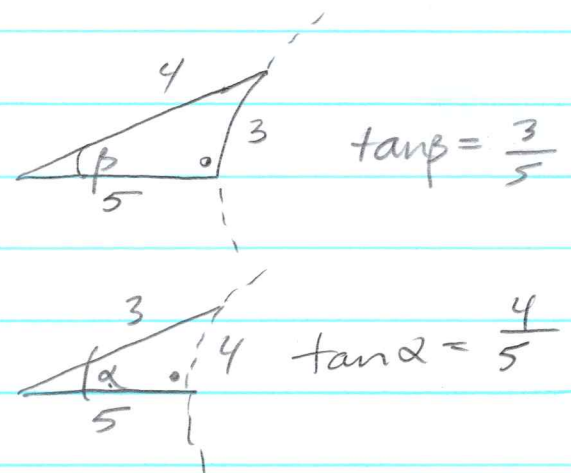 4
3
β
5
tanβ = 3/5
3
4
α
5
tanα = 4/5